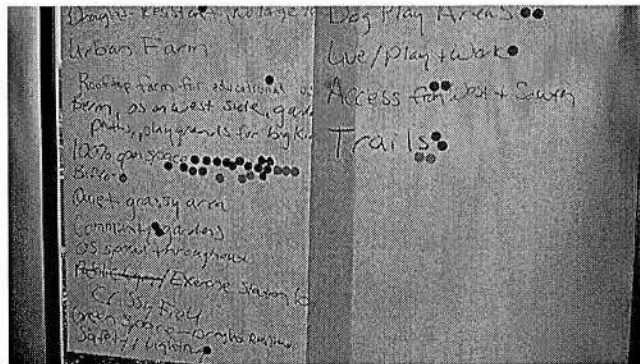 Urban Farm
Rooftop farm for educational
Berm, as on west side, garden
paths, playgrounds for big kids
100% open space
Bistro
Quiet grassy area
Community gardens
OS spread throughout
/Exercise Station
Crissy Field
Green Space
Safety/Lighting
Dog Play Areas
Live/Play + Work
Access from West + South
Trails